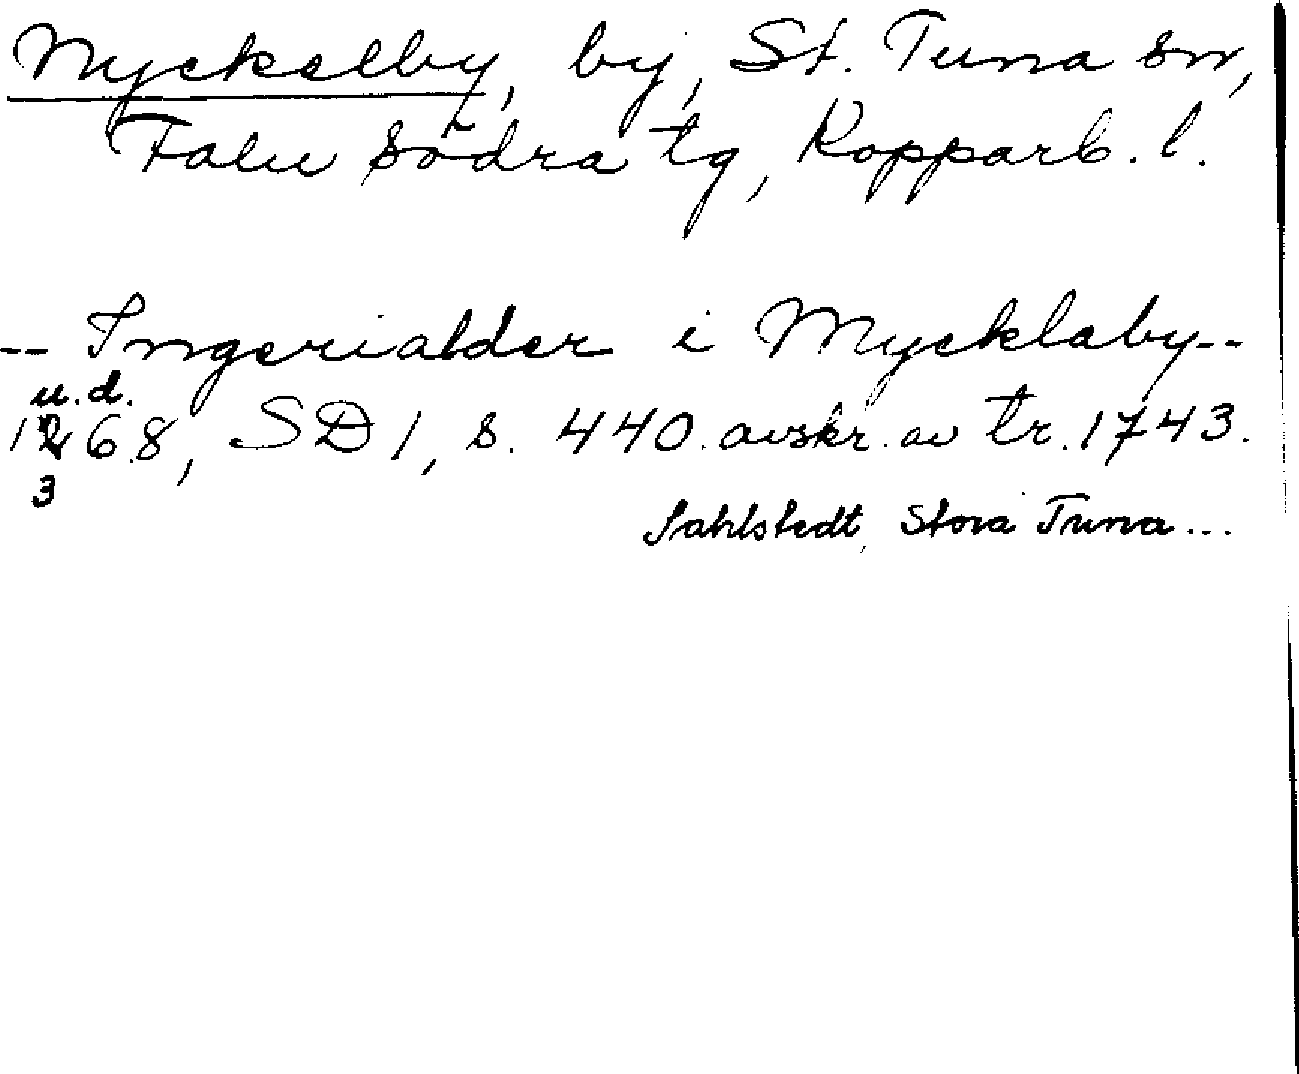 Myckelby, by, St. Tuna sn,
Falu södra tg, Kopparb. l.
-- Ingerialder i Mycklaby--
u.d.
1268, SD 1, s. 440. avskr. av tr. 1743.
3
Sahlstedt, Stora Tuna...